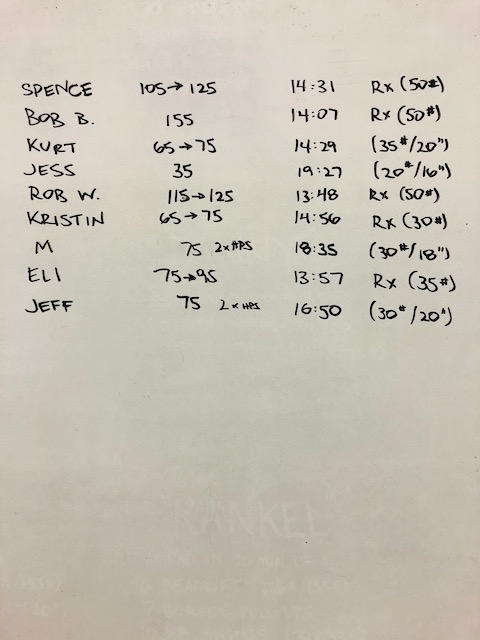 SPENCE 105→125 14:31 Rx (50#)
BOB B. 155 14:07 Rx (50#)
KURT 65→75 14:29 (35#/20")
JESS 35 19:27 (20#/16")
ROB W. 115→125 13:48 Rx (50#)
KRISTIN 65→75 14:56 Rx (30#)
M 75 2xHPS 18:35 (30#/18")
ELI 75→95 13:57 Rx (35#)
JEFF 75 2xHPS 16:50 (30#/20")
RANKEL